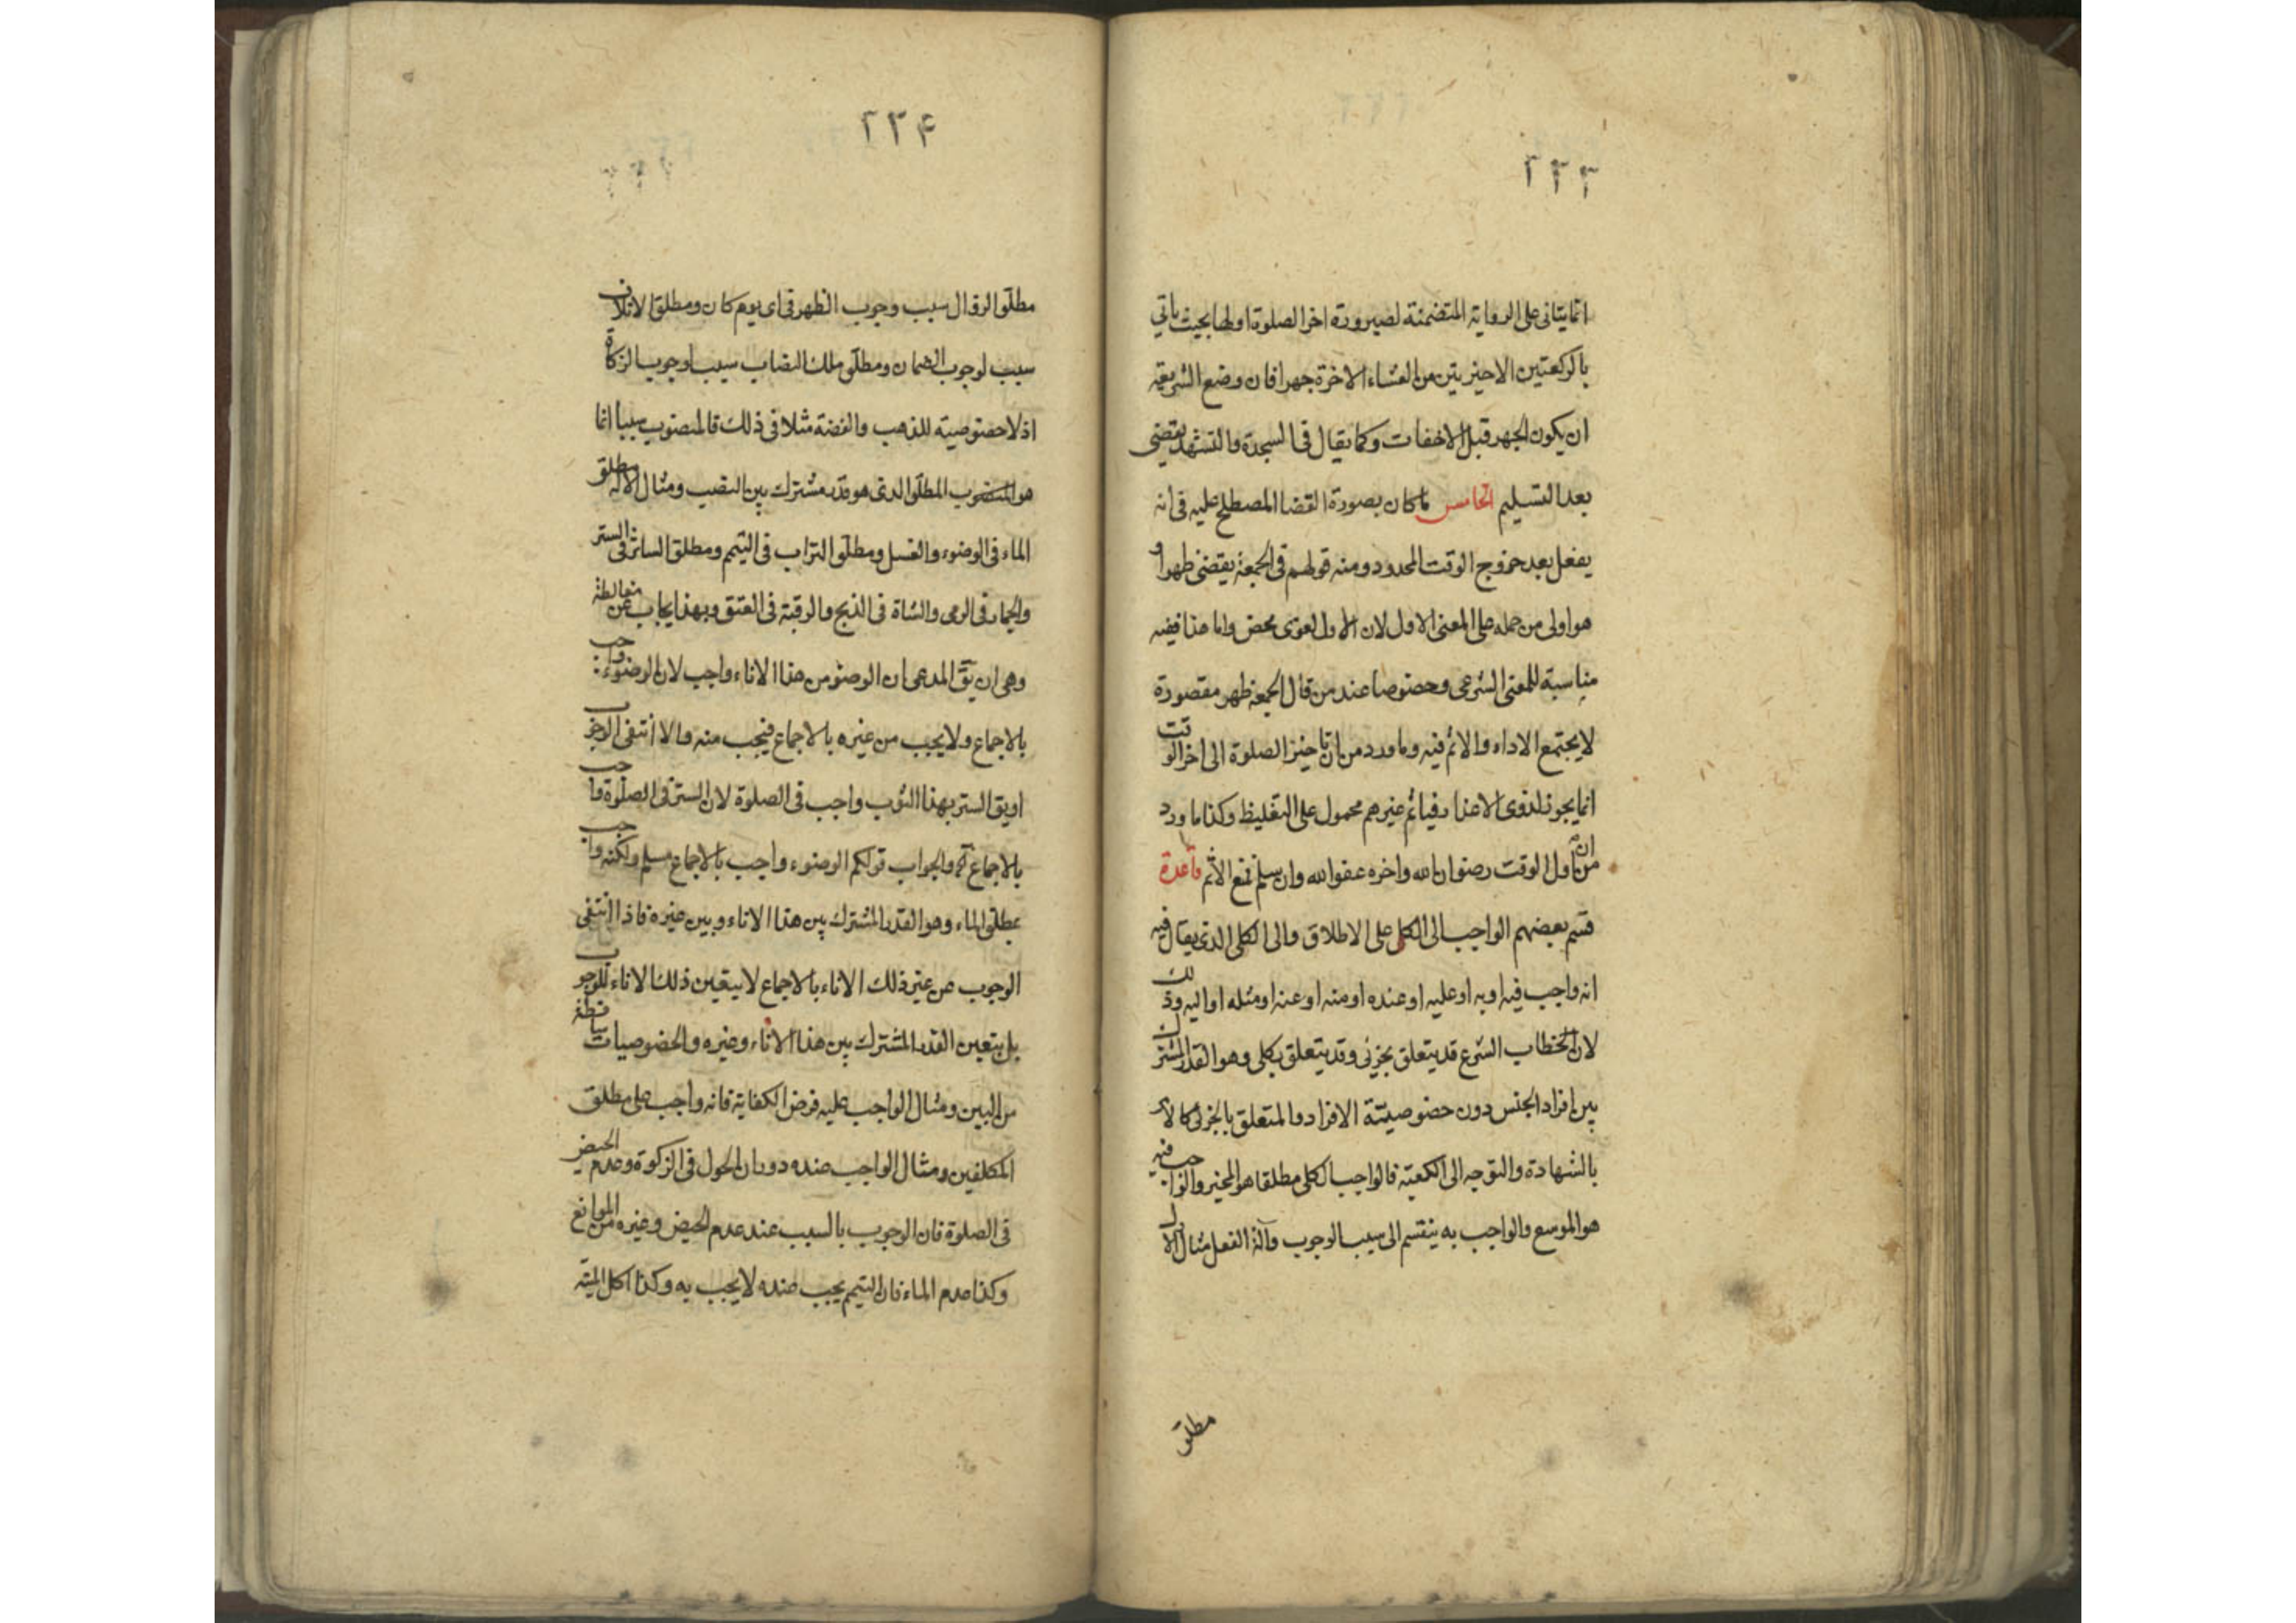 ٢٢٣
انما يتاتى على الرواية المتضمنة لصيرورة اخر الصلوة اولها بحيث ياتي
بالركعتين الاخيرتين من العشاء الاخرة جهرا فان وضع الشريعة
ان يكون الجهر قبل الاخفات وكما يقال في السجدة والتشهد يقضى
بعد التسليم الخامس ما كان بصورة القضا المصطلح عليه في انه
يفعل بعد خروج الوقت المحدود ومنه قولهم في الجمعة يقضى ظهرا و
هو اولى من حمله على المعنى الاول لان الاول لغوى محض واما هذا ففيه
مناسبة للمعنى الشرعى وخصوصا عند من قال الجمعة ظهر مقصورة
لا يجتمع الاداء والاثم فيه وما ورد من ان تاخير الصلوة الى اخر الوقت
انما يجوز لذوى الاعذار فياثم غيرهم محمول على التغليظ وكذا ما ورد
من ان اول الوقت رضوان الله واخره عفو الله وان سلم فمع الاثم قاعدة
قسم بعضهم الواجب الى الكلى على الاطلاق والى الكلى الذى يقال فيه
انه واجب فيه او به او عليه او عنده او منه او عنه او مثله او اليه وذلك
لان الخطاب الشرع قد يتعلق بجزئى وقد يتعلق بكلى وهو القدر المشترك
بين افراد الجنس دون خصوصيتة الافراد والمتعلق بالجزئى كالامر
بالشهادة والتوجه الى الكعبة فالواجب الكلى مطلقا هو المخير والواجب فيه
هو الموسع والواجب به ينقسم الى سبب الوجوب وآلة الفعل مثال الاول
مطلق
٢٢۴
مطلق الزوال سبب وجوب الظهر في اى يوم كان ومطلق الاتلاف
سبب لوجوب الضمان ومطلق ملك النصاب سبب لوجوب الزكاة
اذ لا خصوصيته للذهب والفضة مثلا في ذلك فالمنصوب سببا انما
هو المنصوب المطلق الذى هو قدر مشترك بين النصب ومثال الآلة مطلق
الماء في الوضوء والغسل ومطلق التراب في التيمم ومطلق الساتر في الستر
والجمار في الرمى والشاة في الذبح والرقبة في العتق وبهذا يجاب عن مغالطة
وهى ان يق المدعى ان الوضوء من هذا الاناء واجب لان الوضوء واجب
بالاجماع ولا يجب من غيره بالاجماع فيجب منه والا انتفى الوجوب
او يق الستر بهذا الثوب واجب في الصلوة لان الستر في الصلوة واجب
بالاجماع آه والجواب قولكم الوضوء واجب بالاجماع مسلم ولكنه واجب
بمطلق الماء وهو القدر المشترك بين هذا الاناء وبين غيره فاذا انتفى
الوجوب عن غير ذلك الاناء بالاجماع لا يتعين ذلك الاناء للوجوب
بل يتعين القدر المشترك بين هذا الاناء وغيره والخصوصيات ساقطة
من البين ومثال الواجب عليه فرض الكفاية فانه واجب على مطلق
المكلفين ومثال الواجب عنده دوران الحول في الزكوة وعدم الحيض
في الصلوة فان الوجوب بالسبب عند عدم الحيض وغيره من الموانع
وكذا عدم الماء فان التيمم يجب عنده لا يجب به وكذا اكل الميتة